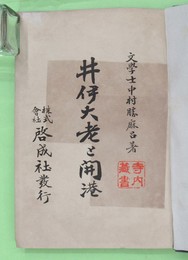 文學士中村勝麻呂著
井伊大老と開港
株式會社
啓成社發行
寺内藏書